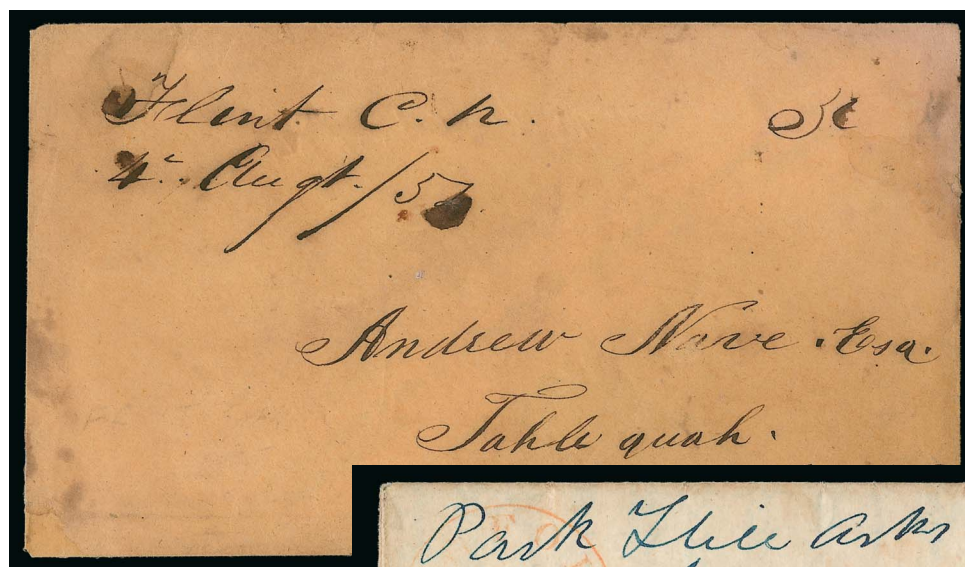 Flint C. N. 5c
4th Augt. /57
Andrew Nave. Esq.
Tahlequah.
Park Hill Arks